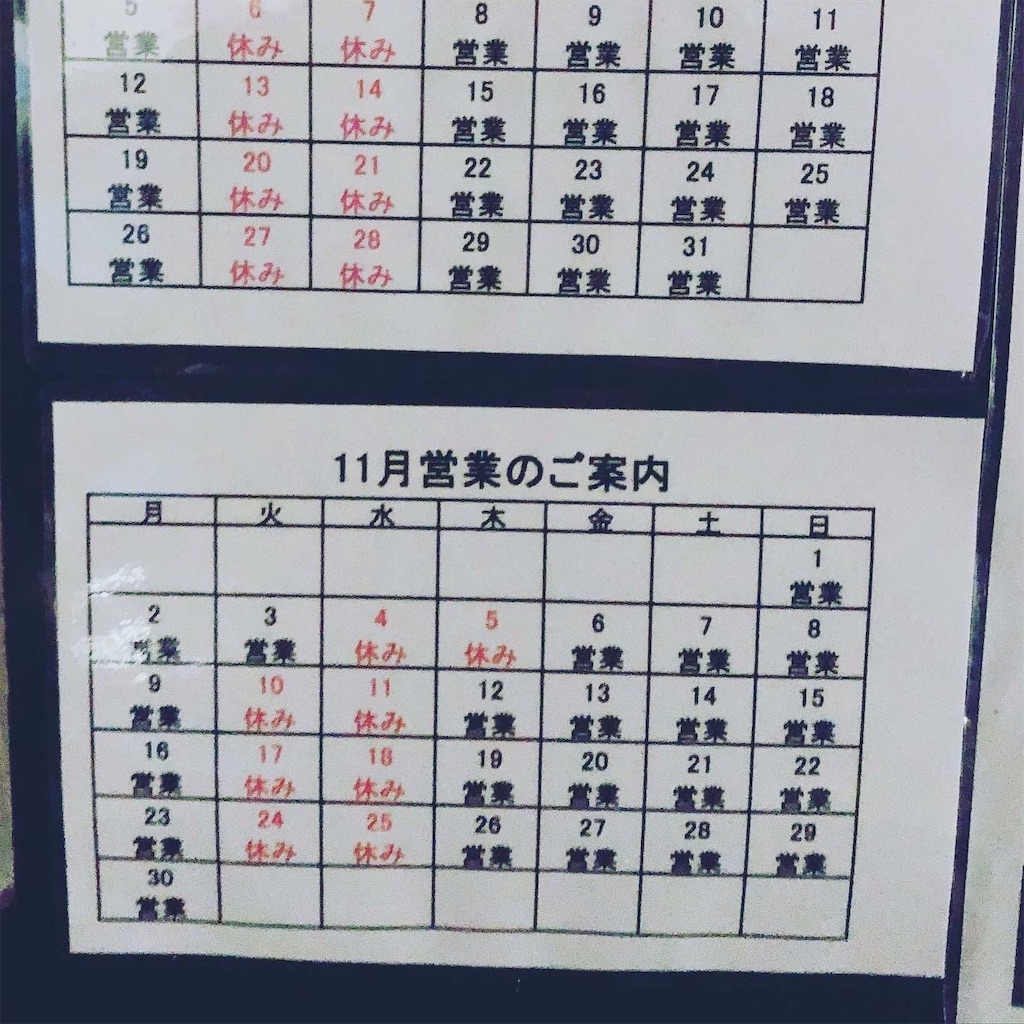 5 6 7 8 9 10 11
営業 休み 休み 営業 営業 営業 営業
12 13 14 15 16 17 18
営業 休み 休み 営業 営業 営業 営業
19 20 21 22 23 24 25
営業 休み 休み 営業 営業 営業 営業
26 27 28 29 30 31
営業 休み 休み 営業 営業 営業
11月営業のご案内
月 火 水 木 金 土 日
1
営業
2 3 4 5 6 7 8
営業 営業 休み 休み 営業 営業 営業
9 10 11 12 13 14 15
営業 休み 休み 営業 営業 営業 営業
16 17 18 19 20 21 22
営業 休み 休み 営業 営業 営業 営業
23 24 25 26 27 28 29
営業 休み 休み 営業 営業 営業 営業
30
営業